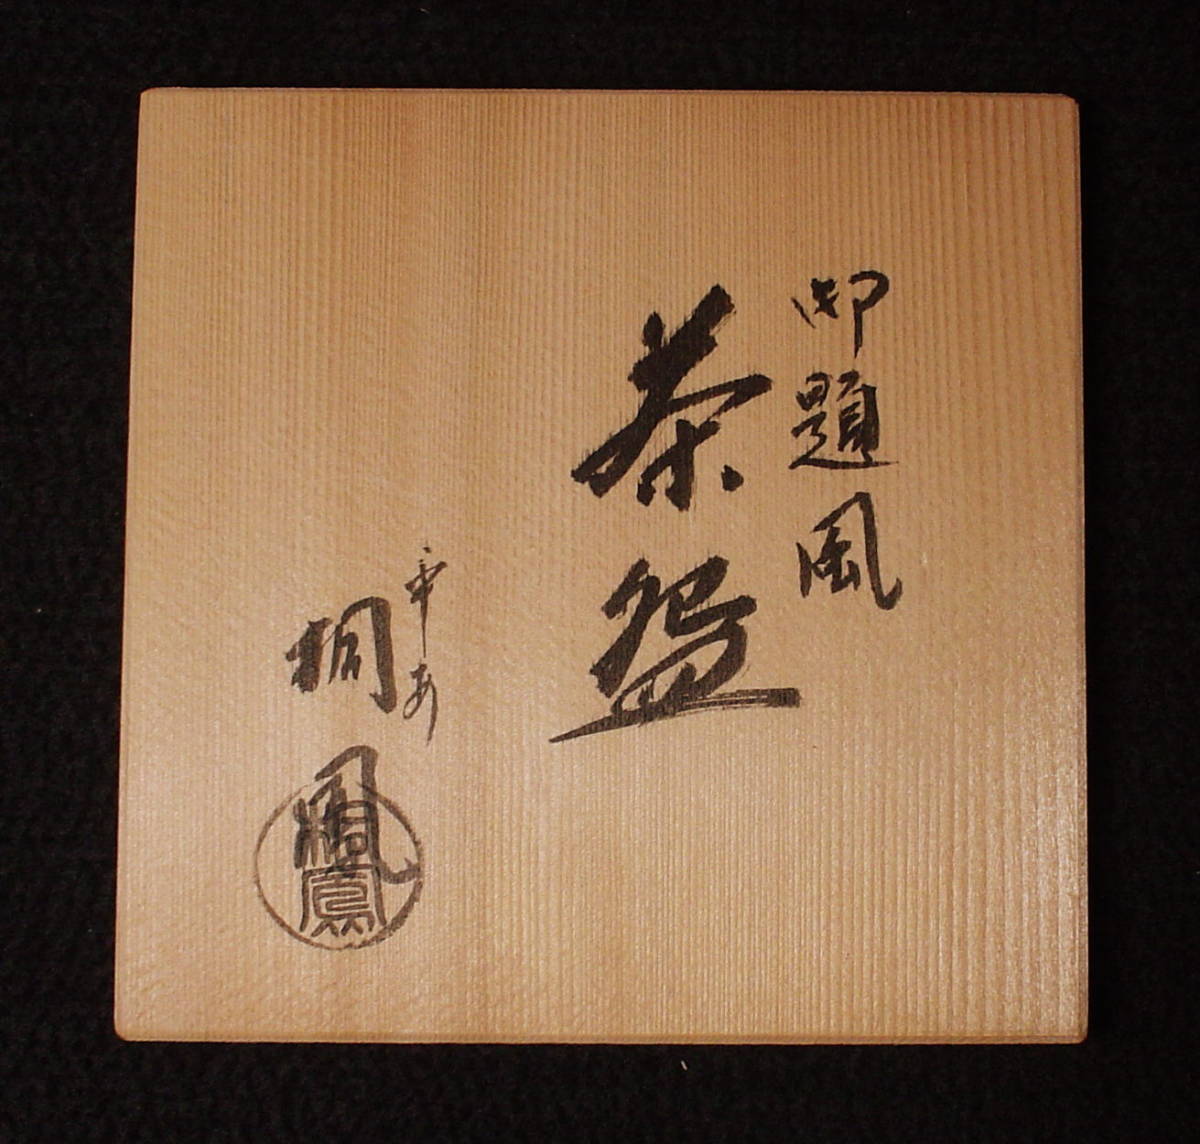 御題風
茶盌
平安
桐鳳
桐鳳